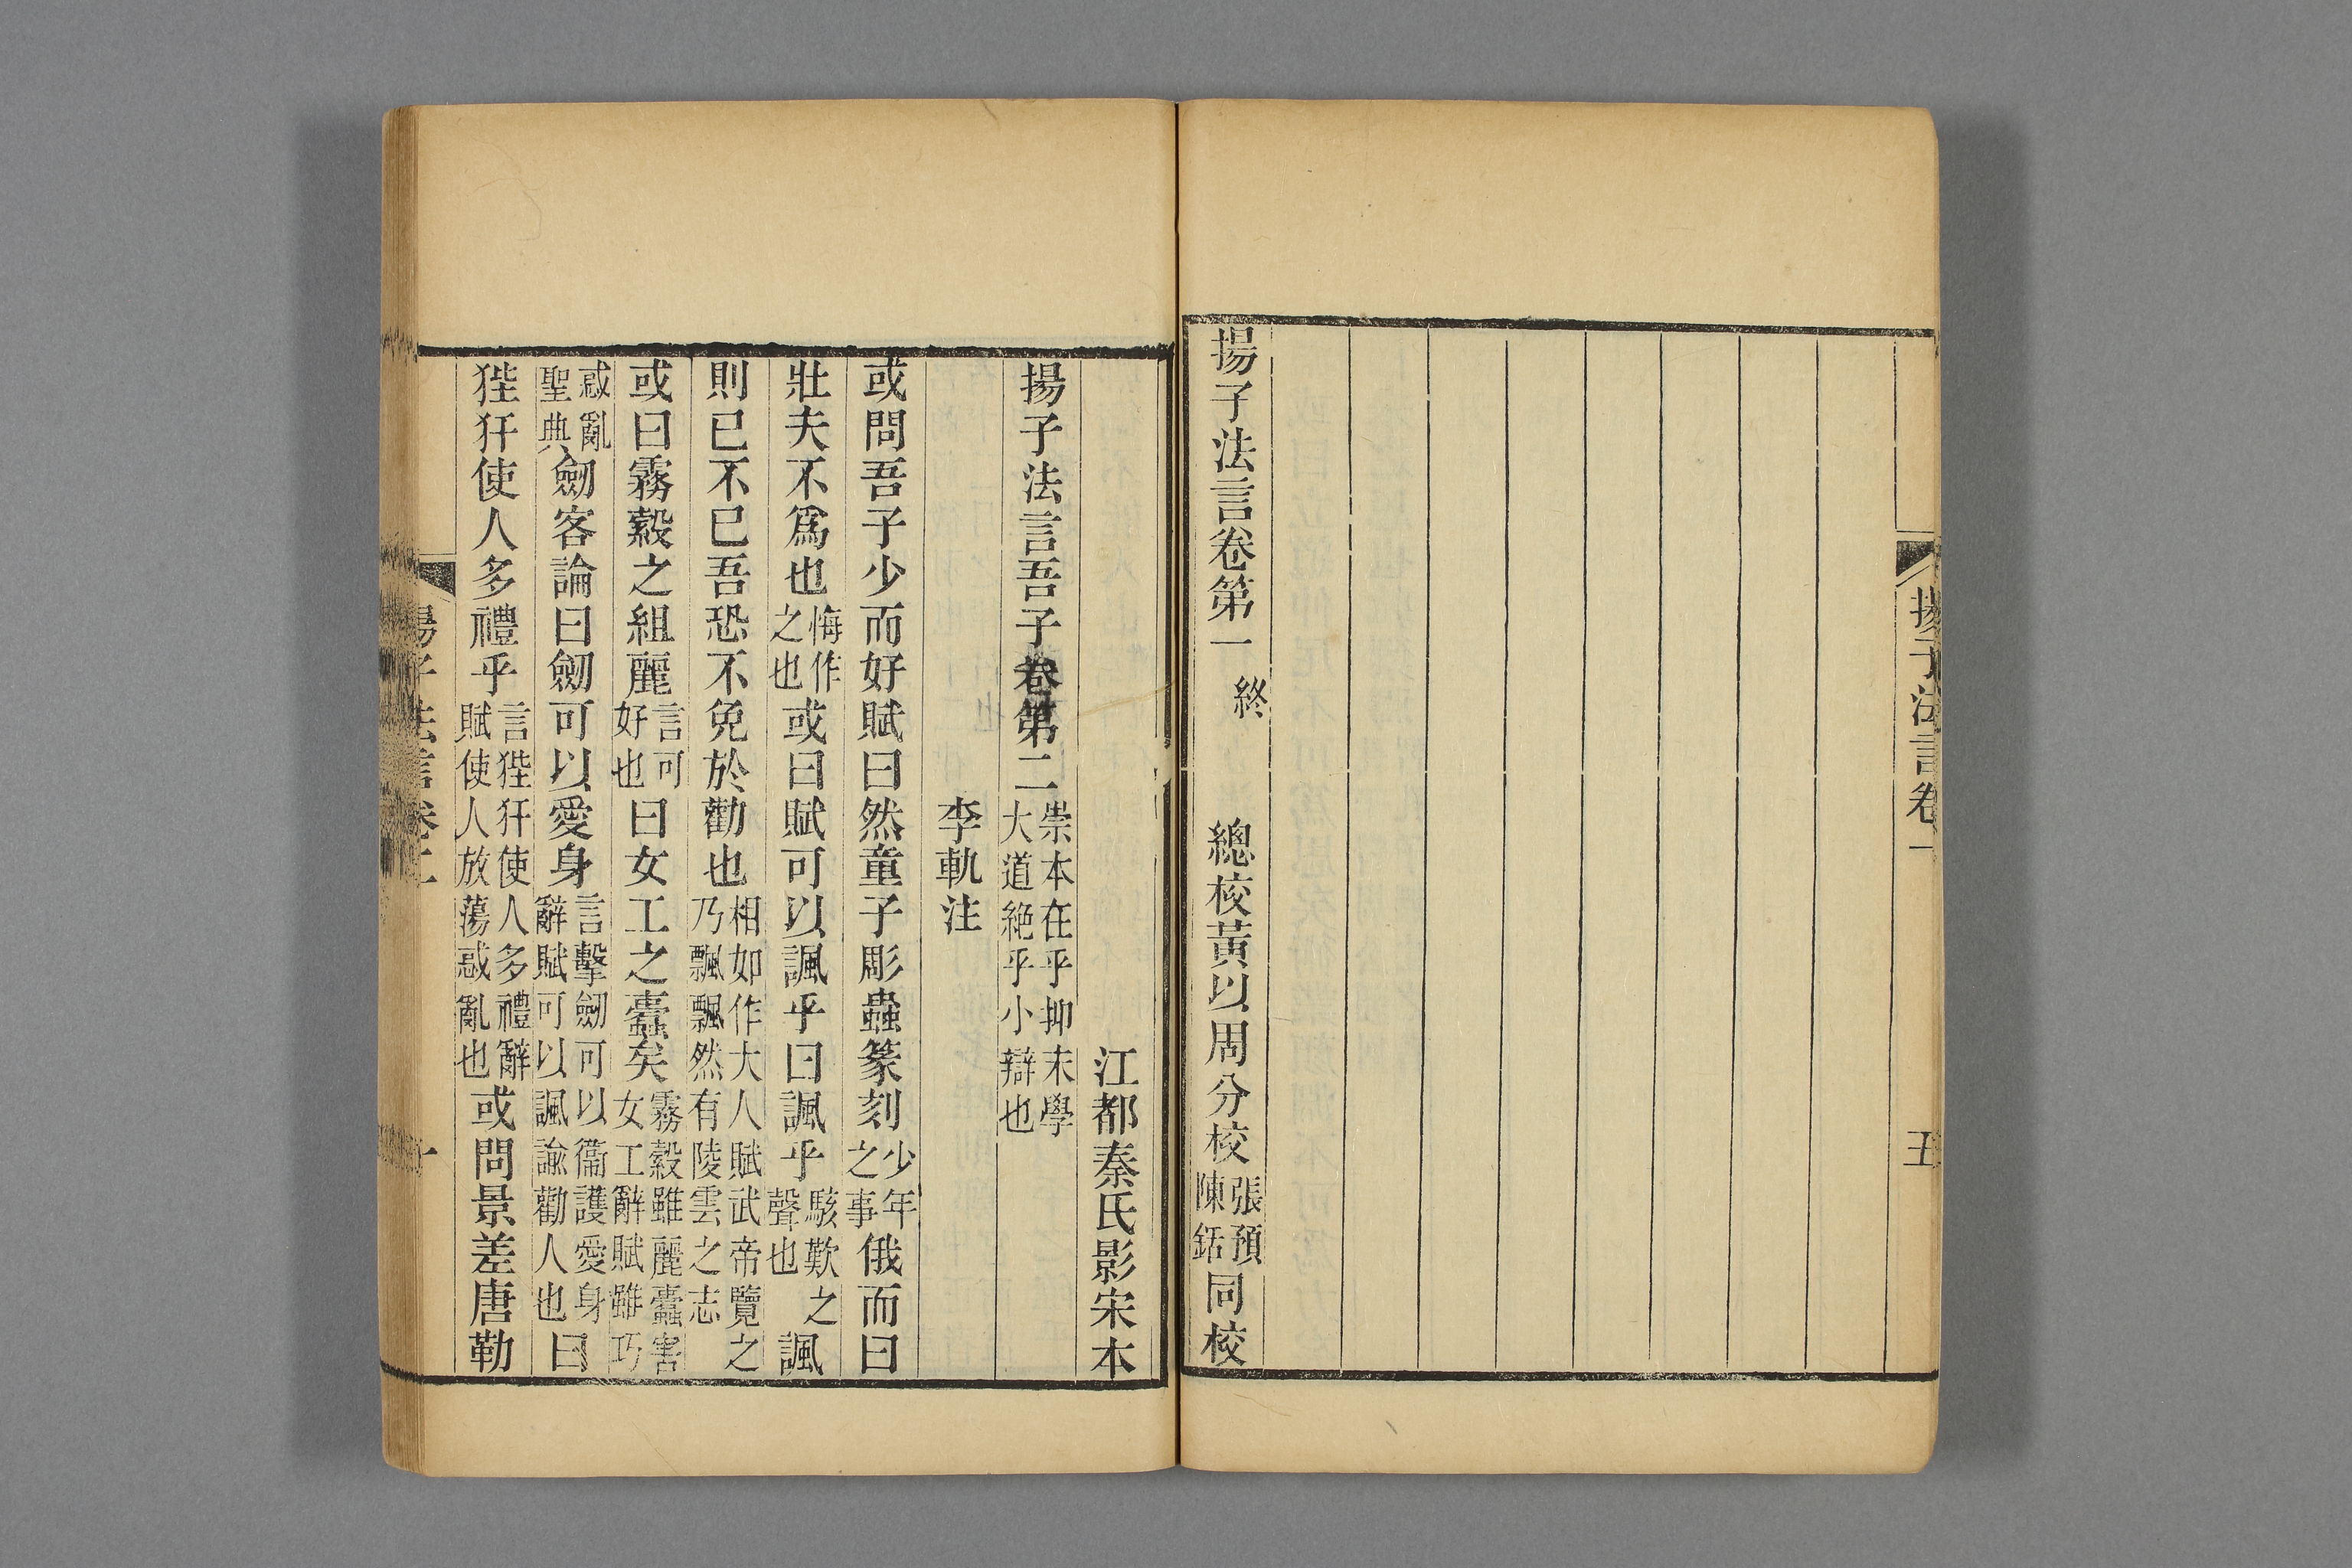 揚子法言卷一
五
揚子法言卷第一 終 總校黃以周分校張預陳銛同校
江都秦氏影宋本
揚子法言吾子卷第二崇本在乎抑末學大道絶乎小辯也
李軌注
或問吾子少而好賦曰然童子彫蟲篆刻少年之事俄而曰
壯夫不爲也悔作之也或曰賦可以諷乎曰諷乎駭歎之聲也諷
則已不已吾恐不免於勸也相如作大人賦武帝覽之乃飄飄然有陵雲之志
或曰霧縠之組麗言可好也曰女工之蠹矣霧縠雖麗蠹害女工辭賦雖巧
惑亂聖典劒客論曰劒可以愛身言擊劒可以衞護愛身辭賦可以諷諭勸人也曰
狴犴使人多禮乎言狴犴使人多禮辭賦使人放蕩惑亂也或問景差唐勒
揚子法言卷二